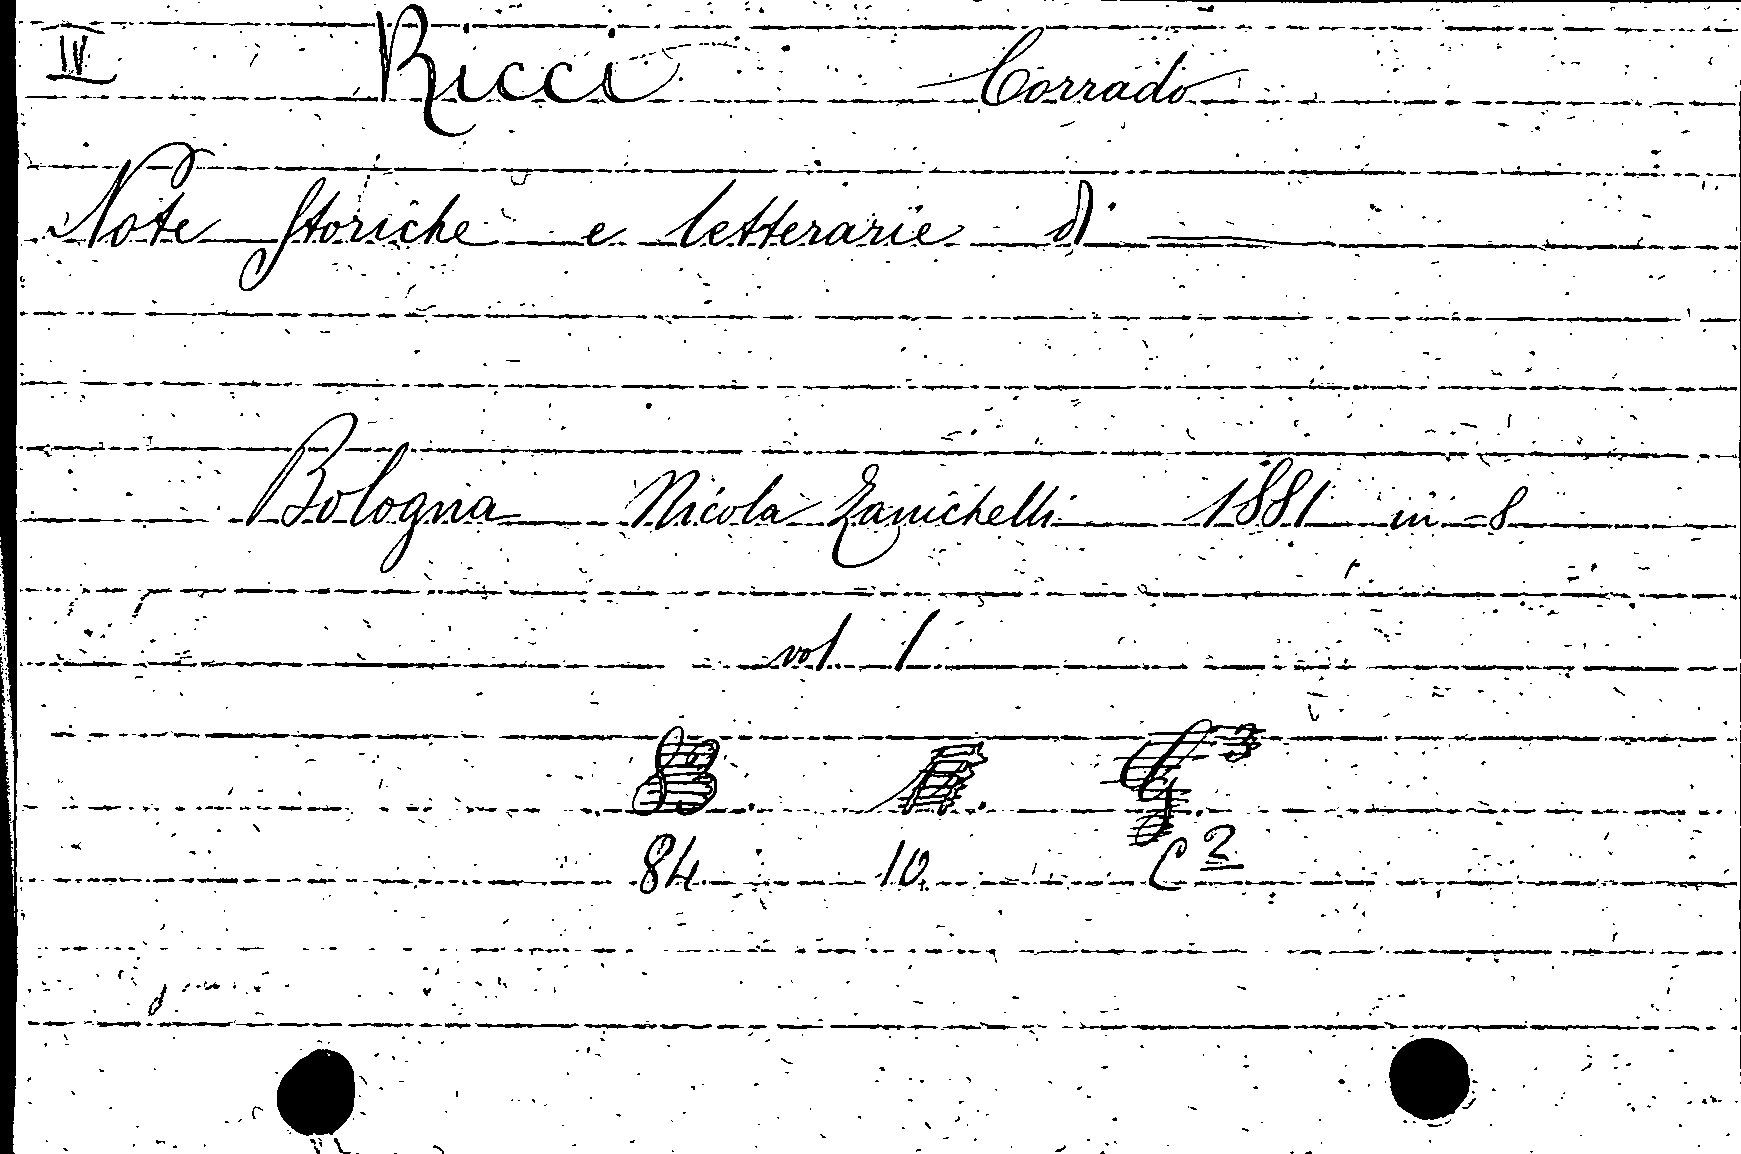 IV Ricci Corrado
Note storiche e letterarie di ——
Bologna Nicola Zanichelli 1881 in-8
vol. 1
84 10 C 2